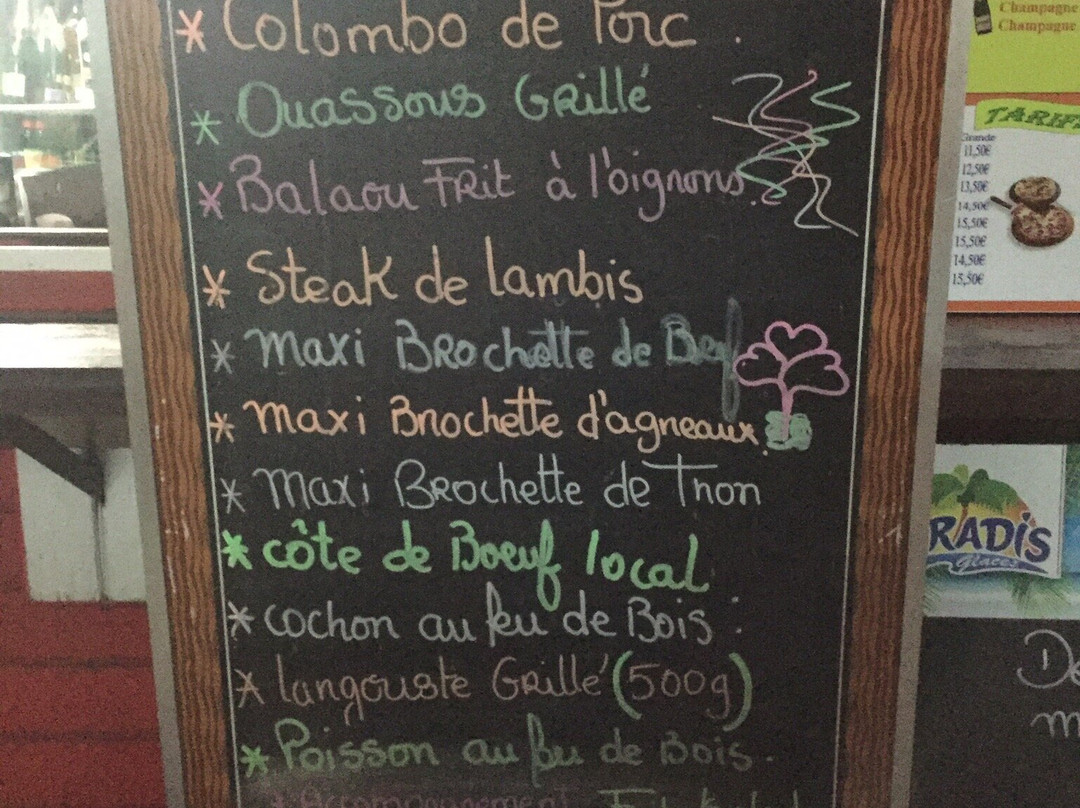 * Colombo de Porc .
* Ouassous Grillé
* Balaou Frit à l'oignons
* Steak de lambis
* Maxi Brochette de Bœf
* Maxi Brochette d'agneaux.
* Maxi Brochette de Thon
* côte de Boeuf local
* cochon au feu de Bois :
* langouste Grillé (500g)
* Poisson au feu de Bois .
* Accompagnement
Champagne
Champagne
TARIF
Grande
11,50€
12,50€
13,50€
14,50€
15,50€
15,50€
14,50€
15,50€
RADIS
Glaces
De
m